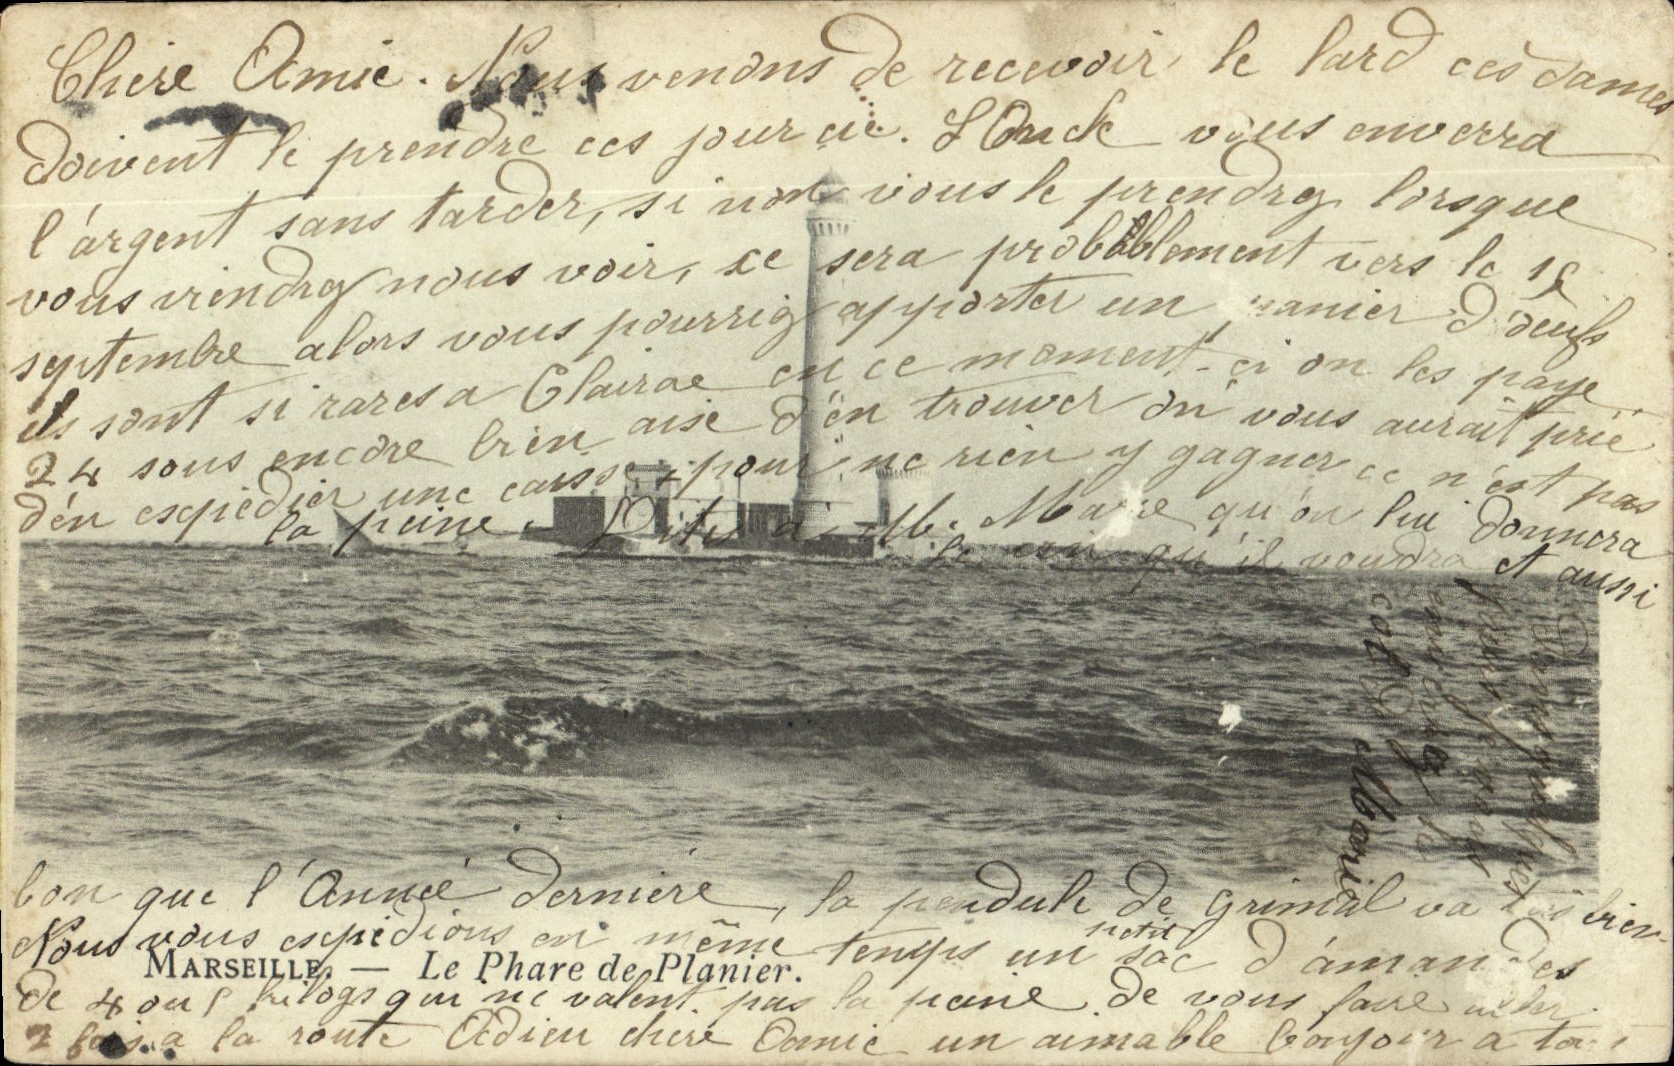 Chère Amie. Nous venons de recevoir le lard ces dames
doivent le prendre ces jour ci. L'Onck vous enverra
l'argent sans tarder, si non vous le prendrez lorsque
vous viendrez nous voir, ce sera probablement vers le 15
septembre alors vous pourriez apporter un panier d'oeufs
ils sont si rares a Clairac en ce moment-ci on les paye
24 sous encore bien aise d'en trouver on vous aurait prié
d'en expédier une caisse, pour ne rien y gagner ce n'est pas
la peine. Dites a M. Marie qu'on lui donnera
le vin qu'il voudra et aussi
bon que l'Année dernière, la pendule de Grimal va très bien
Nous vous expédions en même temps un petit sac d'amandes
MARSEILLE. — Le Phare de Planier.
de 4 ou 5 kilogs qui ne valent pas la peine de vous faire aller
2 fois a la route Adieu chère Amie un aimable bonjour a tous
pour vous
enverrez le
colis Marie